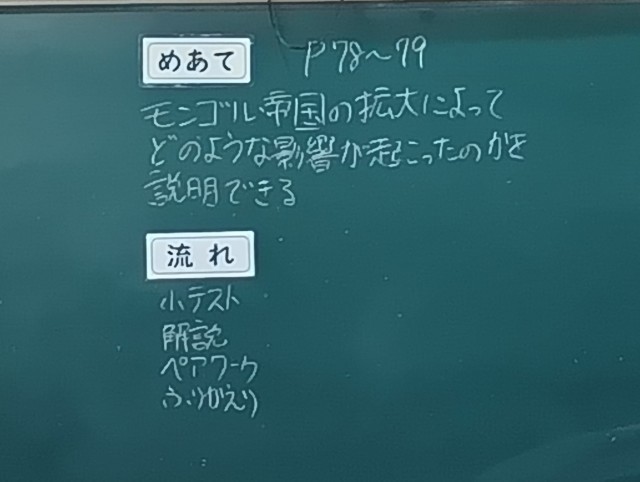 めあて P78~79
モンゴル帝国の拡大によって
どのような影響が起こったのかを
説明できる
流れ
小テスト
解説
ペアワーク
ふりがえり